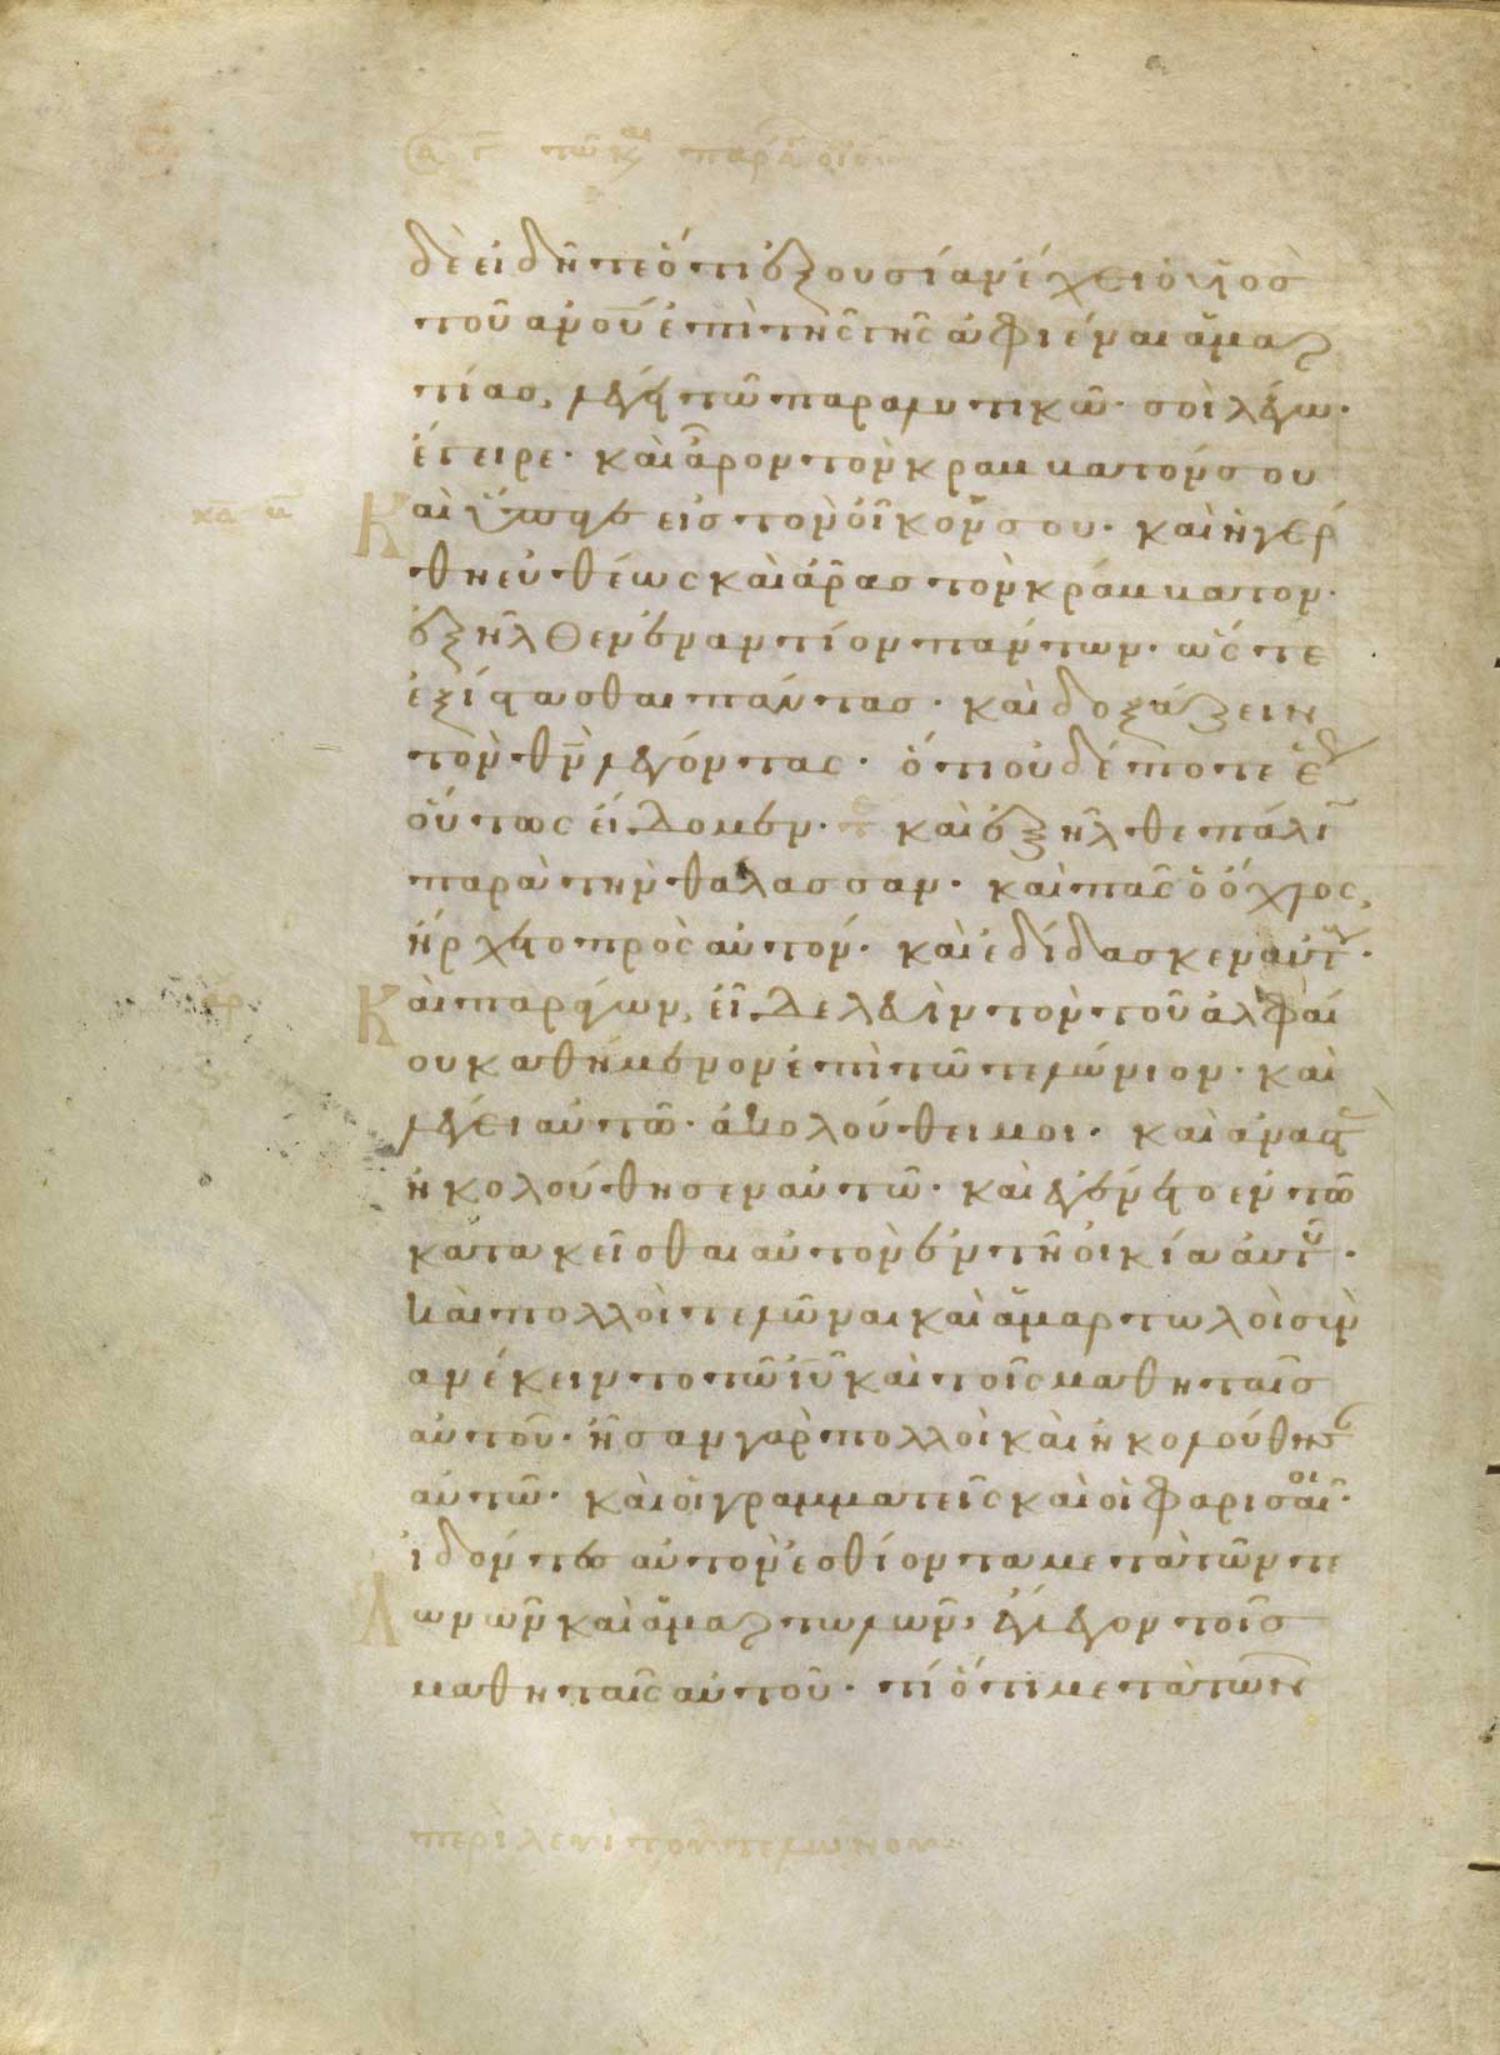 δὲ εἰδῆτε ὅτι ἐξουσίαν ἔχει ὁ υἱὸσ
τοῦ ἀνου ἐπὶ τῆς γῆς ἀφιέναι ἁμαρ
τίασ, λέγει τῶ παραλυτικῶ· σοὶ λέγω·
ἔγειρε· καὶ ἆρον τὸν κράββατόν σου
Καὶ ὕπαγε εἰσ τὸν οἶκόν σου· καὶ ἠγέρ
θη εὐθέως καὶ ἄρασ τὸν κράββατον·
ἐξῆλθεν ἐναντίον πάντων· ὥστε
ἐξίστασθαι πάντασ· καὶ δοξάζειν
τὸν θν λέγοντας· ὅτι οὐδέποτε
οὕτως εἴδομεν· καὶ ἐξῆλθε πάλι
παρὰ τὴν θάλασσαν· καὶ πᾶς ὁ ὄχλος,
ἤρχετο πρὸς αὐτόν· καὶ ἐδίδασκεν αὐτ·
Καὶ παράγων, εἶδε λευὶν τὸν τοῦ ἀλφαί
ου καθήμενον ἐπὶ τῶ τελώνιον· καὶ
λέγει αὐτῶ· ἀκολούθει μοι· καὶ ἀναστ
ἠκολούθησεν αὐτῶ· καὶ ἐγένετο ἐν τῶ
κατακεῖσθαι αὐτὸν ἐν τῆ οἰκία αὐτου·
καὶ πολλοὶ τελῶναι καὶ ἁμαρτωλοὶ συν
ανέκειντο τῶ ιυ καὶ τοῖς μαθηταῖσ
αὐτοῦ· ἦσαν γὰρ πολλοὶ καὶ ἠκολούθησ
αὐτῶ· καὶ οἱ γραμματεῖς καὶ οἱ φαρισαῖοι·
ἰδόντες αὐτὸν ἐσθίοντα μετὰ τῶν τε
λωνῶν καὶ ἁμαρτωλῶν, ἔλεγον τοῖσ
μαθηταῖς αὐτοῦ· τί ὅτι μετὰ τῶν
περὶ λευὶ τοῦ τελώνου